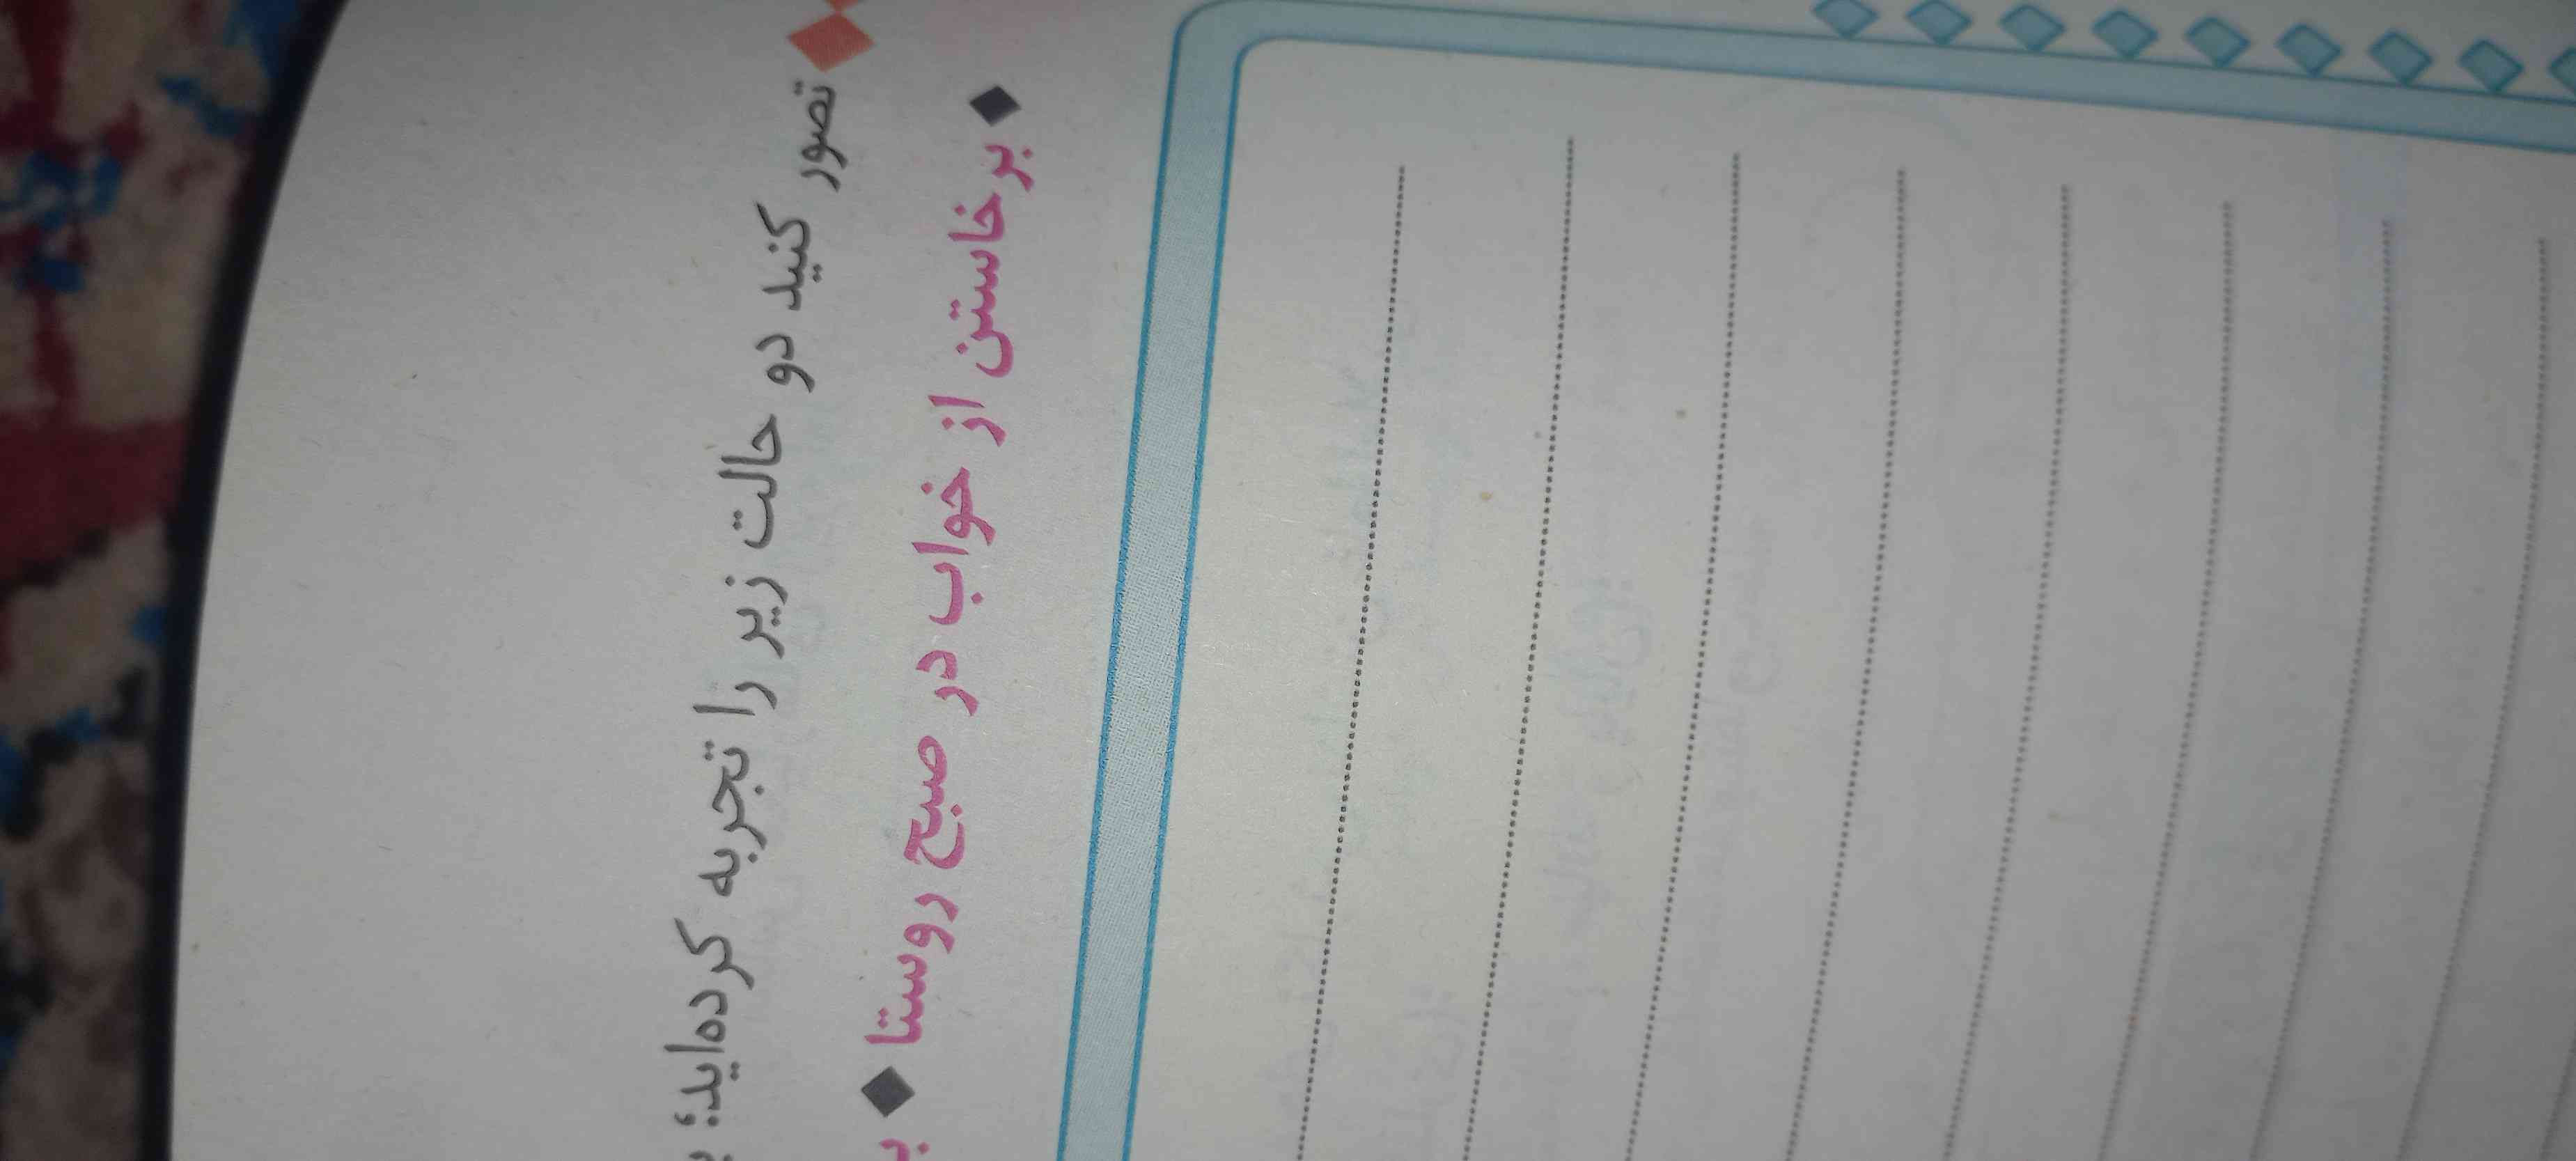 تصور کنید دو حالت زیر را تجربه کرده‌اید؛
برخاستن از خواب در صبح روستا